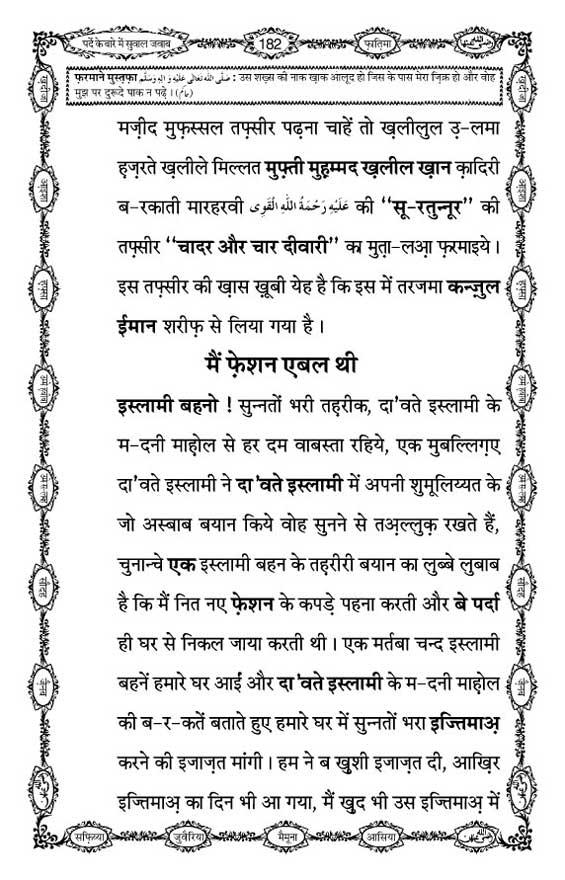 पर्दे के बारे में सुवाल जवाब
182
फ़ातिमा
फ़रमाने मुस्तफ़ा صَلَّى اللّٰهُ تَعَالٰى عَلَيْهِ وَاٰلِهٖ وَسَلَّم : उस शख़्स की नाक ख़ाक आलूद हो जिस के पास मेरा ज़िक्र हो और वोह
मुझ पर दुरूदे पाक न पढ़े। (حاکم)
मज़ीद मुफ़स्सल तफ़्सीर पढ़ना चाहें तो ख़लीलुल उ़-लमा
ह़ज़रते ख़लीले मिल्लत मुफ़्ती मुह़म्मद ख़लील ख़ान क़ादिरी
ब-रकाती मारहरवी عَلَيْهِ رَحْمَةُ اللّٰهِ الْقَوِى की ‘‘सू-रतुन्नूर’’ की
तफ़्सीर ‘‘चादर और चार दीवारी’’ का मुत़ा-लआ़ फ़रमाइये।
इस तफ़्सीर की ख़ास ख़ूबी येह है कि इस में तरजमा कन्ज़ुल
ईमान शरीफ़ से लिया गया है।
मैं फ़ेशन एबल थी
इस्लामी बहनो ! सुन्नतों भरी तह़रीक, दा'वते इस्लामी के
म-दनी माह़ोल से हर दम वाबस्ता रहिये, एक मुबल्लिग़ए
दा'वते इस्लामी ने दा'वते इस्लामी में अपनी शुमूलिय्यत के
जो अस्बाब बयान किये वोह सुनने से तअ़ल्लुक़ रखते हैं,
चुनान्चे एक इस्लामी बहन के तह़रीरी बयान का लुब्बे लुबाब
है कि मैं नित नए फ़ेशन के कपड़े पहना करती और बे पर्दा
ही घर से निकल जाया करती थी। एक मर्तबा चन्द इस्लामी
बहनें हमारे घर आईं और दा'वते इस्लामी के म-दनी माह़ोल
की ब-र-कतें बताते हुए हमारे घर में सुन्नतों भरा इज्तिमाअ़
करने की इजाज़त मांगी। हम ने ब ख़ुशी इजाज़त दी, आख़िर
इज्तिमाअ़ का दिन भी आ गया, मैं ख़ुद भी उस इज्तिमाअ़ में
सफ़िय्या
जुवैरिया
मैमूना
आसिया